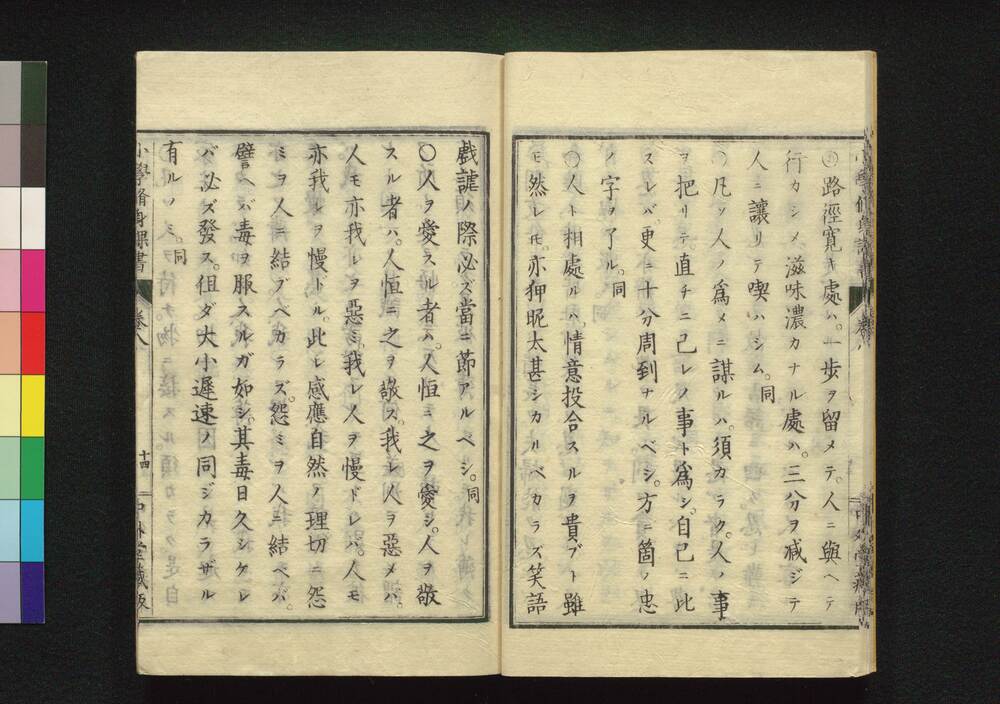 〇路徑寬キ處ハ。一歩ヲ留メテ。人ニ與ヘテ
行カシメ滋味濃カナル處ハ。三分ヲ减ジテ
人ニ讓リテ喫ハシム。同
〇凡ソ人ノ爲メニ謀ルハ。須カラク。人ノ事
ヲ把リテ直チニ己レノ事ト爲シ。自己ニ比
スレバ。更ニ十分周到ナルベシ。方ニ箇ノ忠
ノ字ヲ了ル。同
〇人ト相處ルハ。情意投合スルヲ貴ブト雖
モ然レ𪜈。亦狎昵太甚シカルベカラズ笑語
戲謔ノ際必ズ當ニ節アルベシ。同
〇人ヲ愛スル者ハ。人恒ニ之ヲ愛シ。人ヲ敬
スル者ハ。人恒ニ之ヲ敬ス。我レ人ヲ惡メハ。
人モ亦我レヲ惡ミ。我レ人ヲ慢ドレバ。人モ
亦我レヲ慢ドル。此レ感應自然ノ理切ニ怨
ミヲ人ニ結ブベカラズ。怨ミヲ人ニ結ベバ。
譬ヘバ毒ヲ服スルガ如シ。其毒日久シケレ
バ必ズ發ス。徂ダ大小遲速ノ同ジカラザル
有ルノミ。同
小學脩身課書 卷八 十四 中外堂藏版